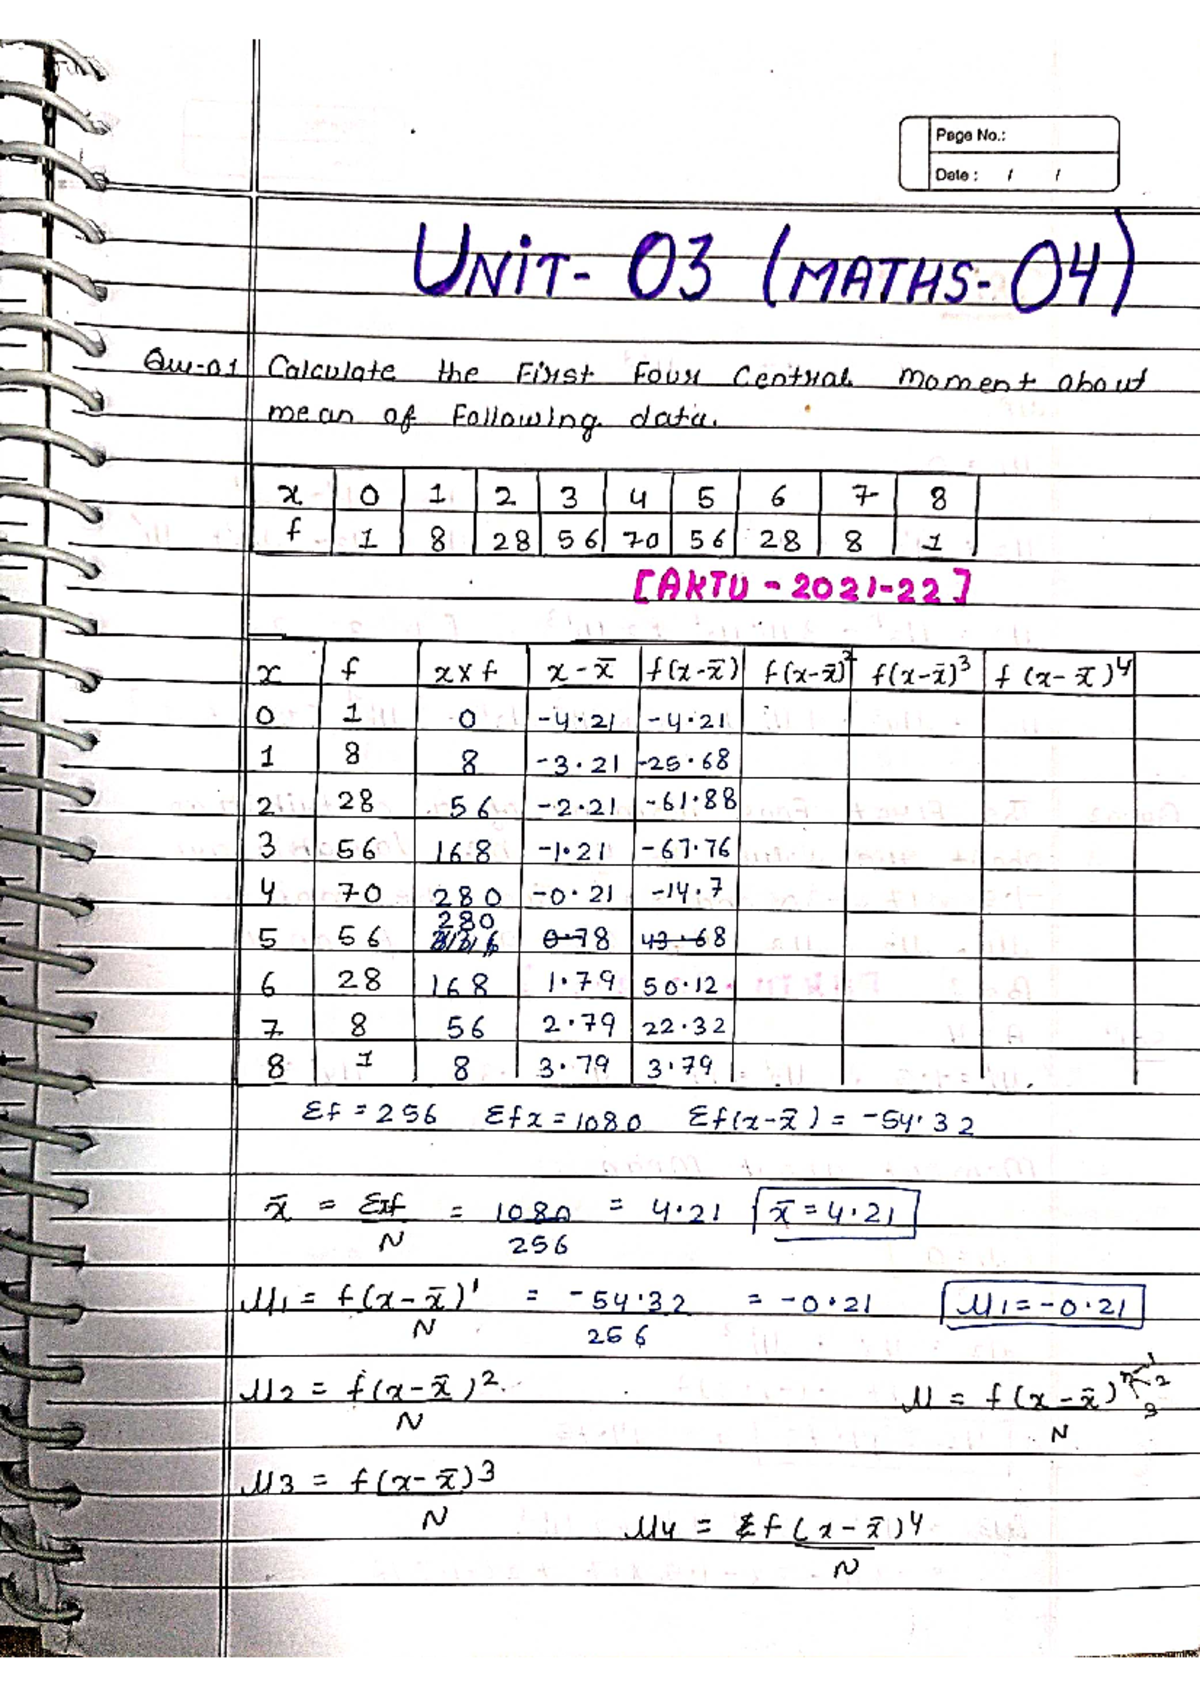 Page No.:
Date : / /
UNIT- 03 (MATHS- 04)
Que-01 Calculate the First Four Central moment about
mean of Following data.
x 0 1 2 3 4 5 6 7 8
f 1 8 28 56 70 56 28 8 1
[AKTU - 2021-22]
x f x×f x-x̄ f(x-x̄) f(x-x̄)² f(x-x̄)³ f(x-x̄)⁴
0 1 0 -4.21 -4.21
1 8 8 -3.21 -25.68
2 28 56 -2.21 -61.88
3 56 168 -1.21 -67.76
4 70 280 -0.21 -14.7
5 56 280 0.78 43.68
6 28 168 1.79 50.12
7 8 56 2.79 22.32
8 1 8 3.79 3.79
Σf = 256 Σfx = 1080 Σf(x-x̄) = -54.32
x̄ = Σxf/N = 1080/256 = 4.21 x̄ = 4.21
μ1 = f(x-x̄)¹/N = -54.32/256 = -0.21 μ1 = -0.21
μ2 = f(x-x̄)²/N μ = f(x-x̄)/N 1 2 3
μ3 = f(x-x̄)³/N
μ4 = Σf(x-x̄)⁴/N